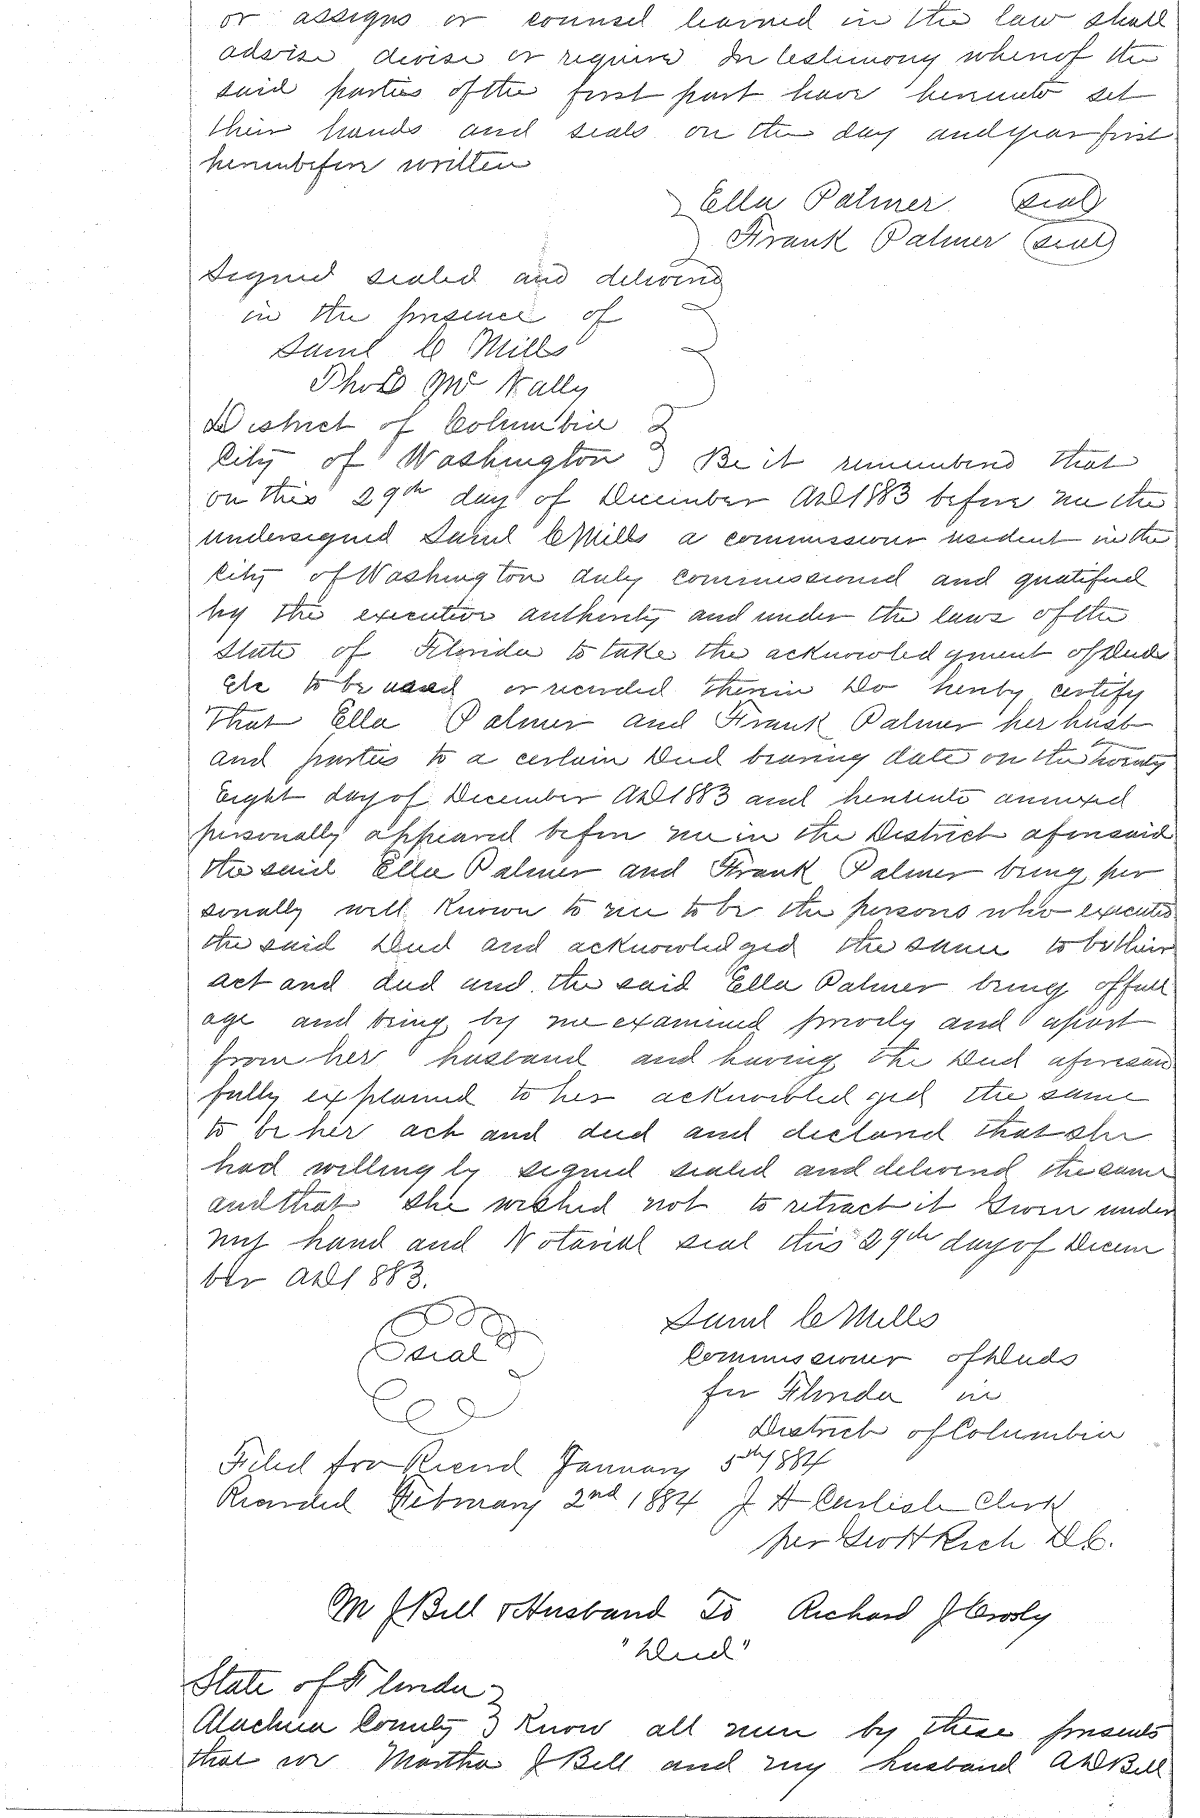 or assigns or counsel learned in the law shall
advise devise or require In testimony whereof the
said parties of the first part have hereunto set
their hands and seals on the day and year first
hereinbefore written
Ella Palmer seal
Frank Palmer seal
Signed sealed and delivered
in the presence of
Saml C Mills
Thos Mc Nally
District of Columbia
City of Washington Be it remembered that
on this 29th day of December AD 1883 before me the
undersigned Saml C Mills a commissioner resident in the
City of Washington duly commissioned and qualified
by the executive authority and under the laws of the
State of Florida to take the acknowledgment of Deeds
Etc to be used or recorded therein Do hereby certify
that Ella Palmer and Frank Palmer her husb
and parties to a certain Deed bearing date on the twenty
Eight day of December AD 1883 and hereunto annexed
personally appeared before me in the District aforesaid
the said Ella Palmer and Frank Palmer being per
sonally well known to me to be the persons who executed
the said Deed and acknowledged the same to be their
act and deed and the said Ella Palmer being of full
age and being by me examined privily and apart
from her husband and having the Deed aforesaid
fully explained to her acknowledged the same
to be her act and deed and declared that she
had willingly signed sealed and delivered the same
and that she wished not to retract it Given under
my hand and Notarial seal this 29th day of Decem
ber AD 1883.
seal
Saml C Mills
Commissioner of Deeds
for Florida in
District of Columbia
Filed for Record January 5th 1884
Recorded February 2nd 1884 J A Carlisle Clerk
per Geo H Rich D.C.
M J Bell & Husband To Richard J Crosly
"Deed"
State of Florida
Alachua County Know all men by these presents
that we Martha J Bell and my husband A D Bell